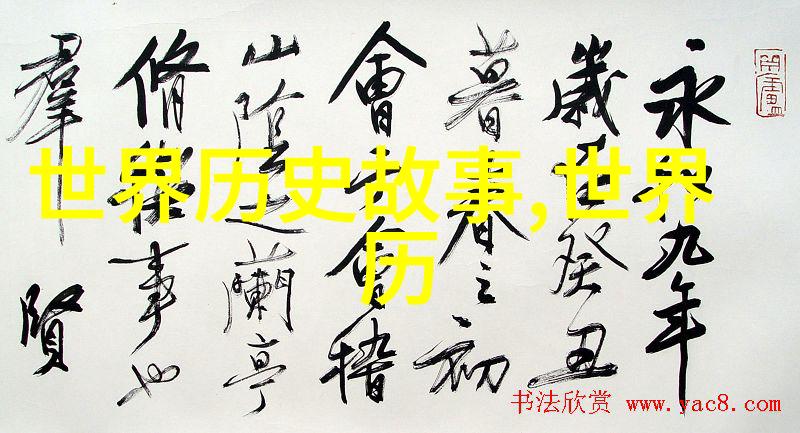 世界历史故事,世界
历
永和九年
歲在癸丑
暮春之初
會于會稽
山陰之蘭亭
脩禊事也
羣賢
书法欣赏 www.yac8.com